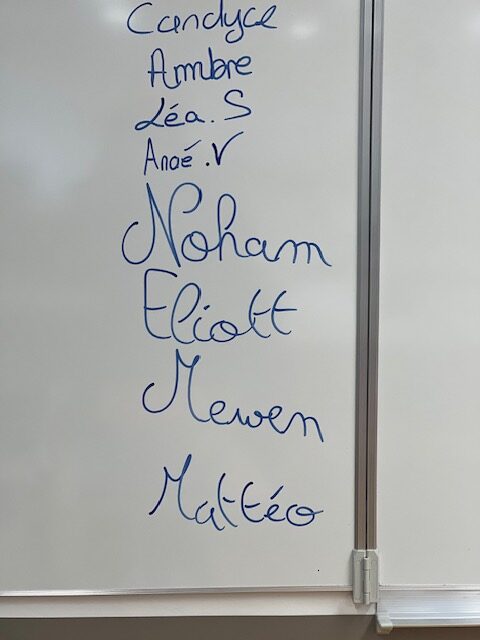 Candyce
Ambre
Léa.S
Anaé.V
Noham
Eliott
Mewen
Mattéo